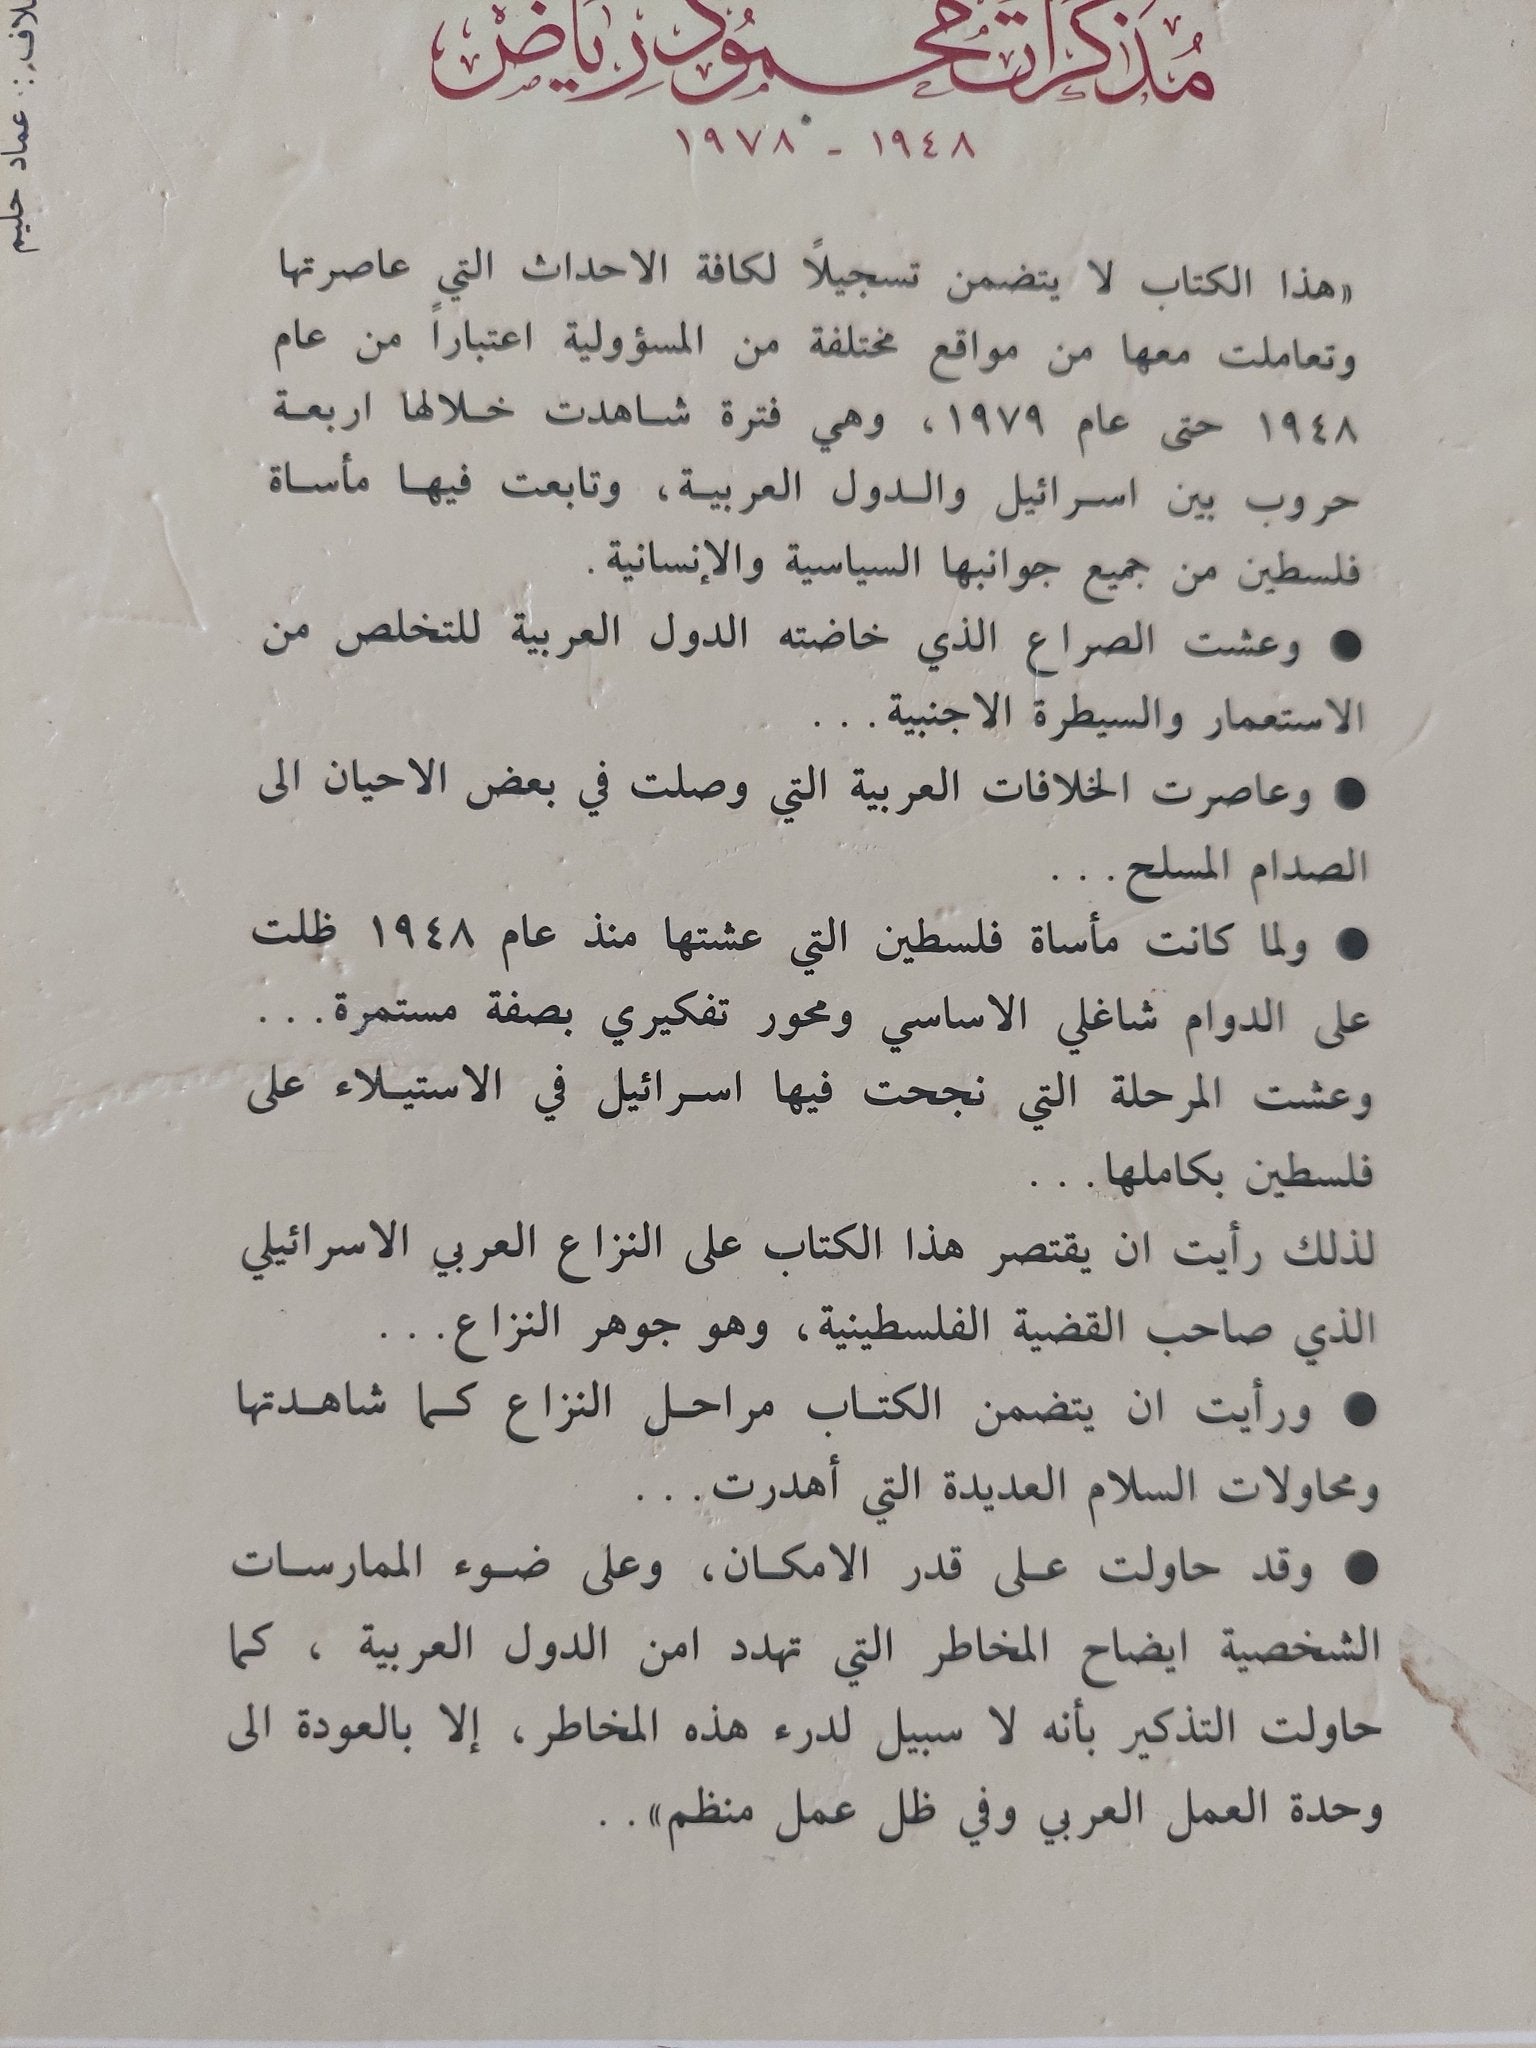 مُذكرات محمود رياض
١٩٤٨ - ١٩٧٨
«هذا الكتاب لا يتضمن تسجيلاً لكافة الاحداث التي عاصرتها
وتعاملت معها من مواقع مختلفة من المسؤولية اعتباراً من عام
١٩٤٨ حتى عام ١٩٧٩، وهي فترة شاهدت خلالها اربعة
حروب بين اسرائيل والدول العربية، وتابعت فيها مأساة
فلسطين من جميع جوانبها السياسية والإنسانية.
● وعشت الصراع الذي خاضته الدول العربية للتخلص من
الاستعمار والسيطرة الاجنبية...
● وعاصرت الخلافات العربية التي وصلت في بعض الاحيان الى
الصدام المسلح...
● ولما كانت مأساة فلسطين التي عشتها منذ عام ١٩٤٨ ظلت
على الدوام شاغلي الاساسي ومحور تفكيري بصفة مستمرة...
وعشت المرحلة التي نجحت فيها اسرائيل في الاستيلاء على
فلسطين بكاملها...
لذلك رأيت ان يقتصر هذا الكتاب على النزاع العربي الاسرائيلي
الذي صاحب القضية الفلسطينية، وهو جوهر النزاع...
● ورأيت ان يتضمن الكتاب مراحل النزاع كما شاهدتها
ومحاولات السلام العديدة التي أهدرت...
● وقد حاولت على قدر الامكان، وعلى ضوء الممارسات
الشخصية ايضاح المخاطر التي تهدد امن الدول العربية ، كما
حاولت التذكير بأنه لا سبيل لدرء هذه المخاطر، إلا بالعودة الى
وحدة العمل العربي وفي ظل عمل منظم»..
عماد حليم